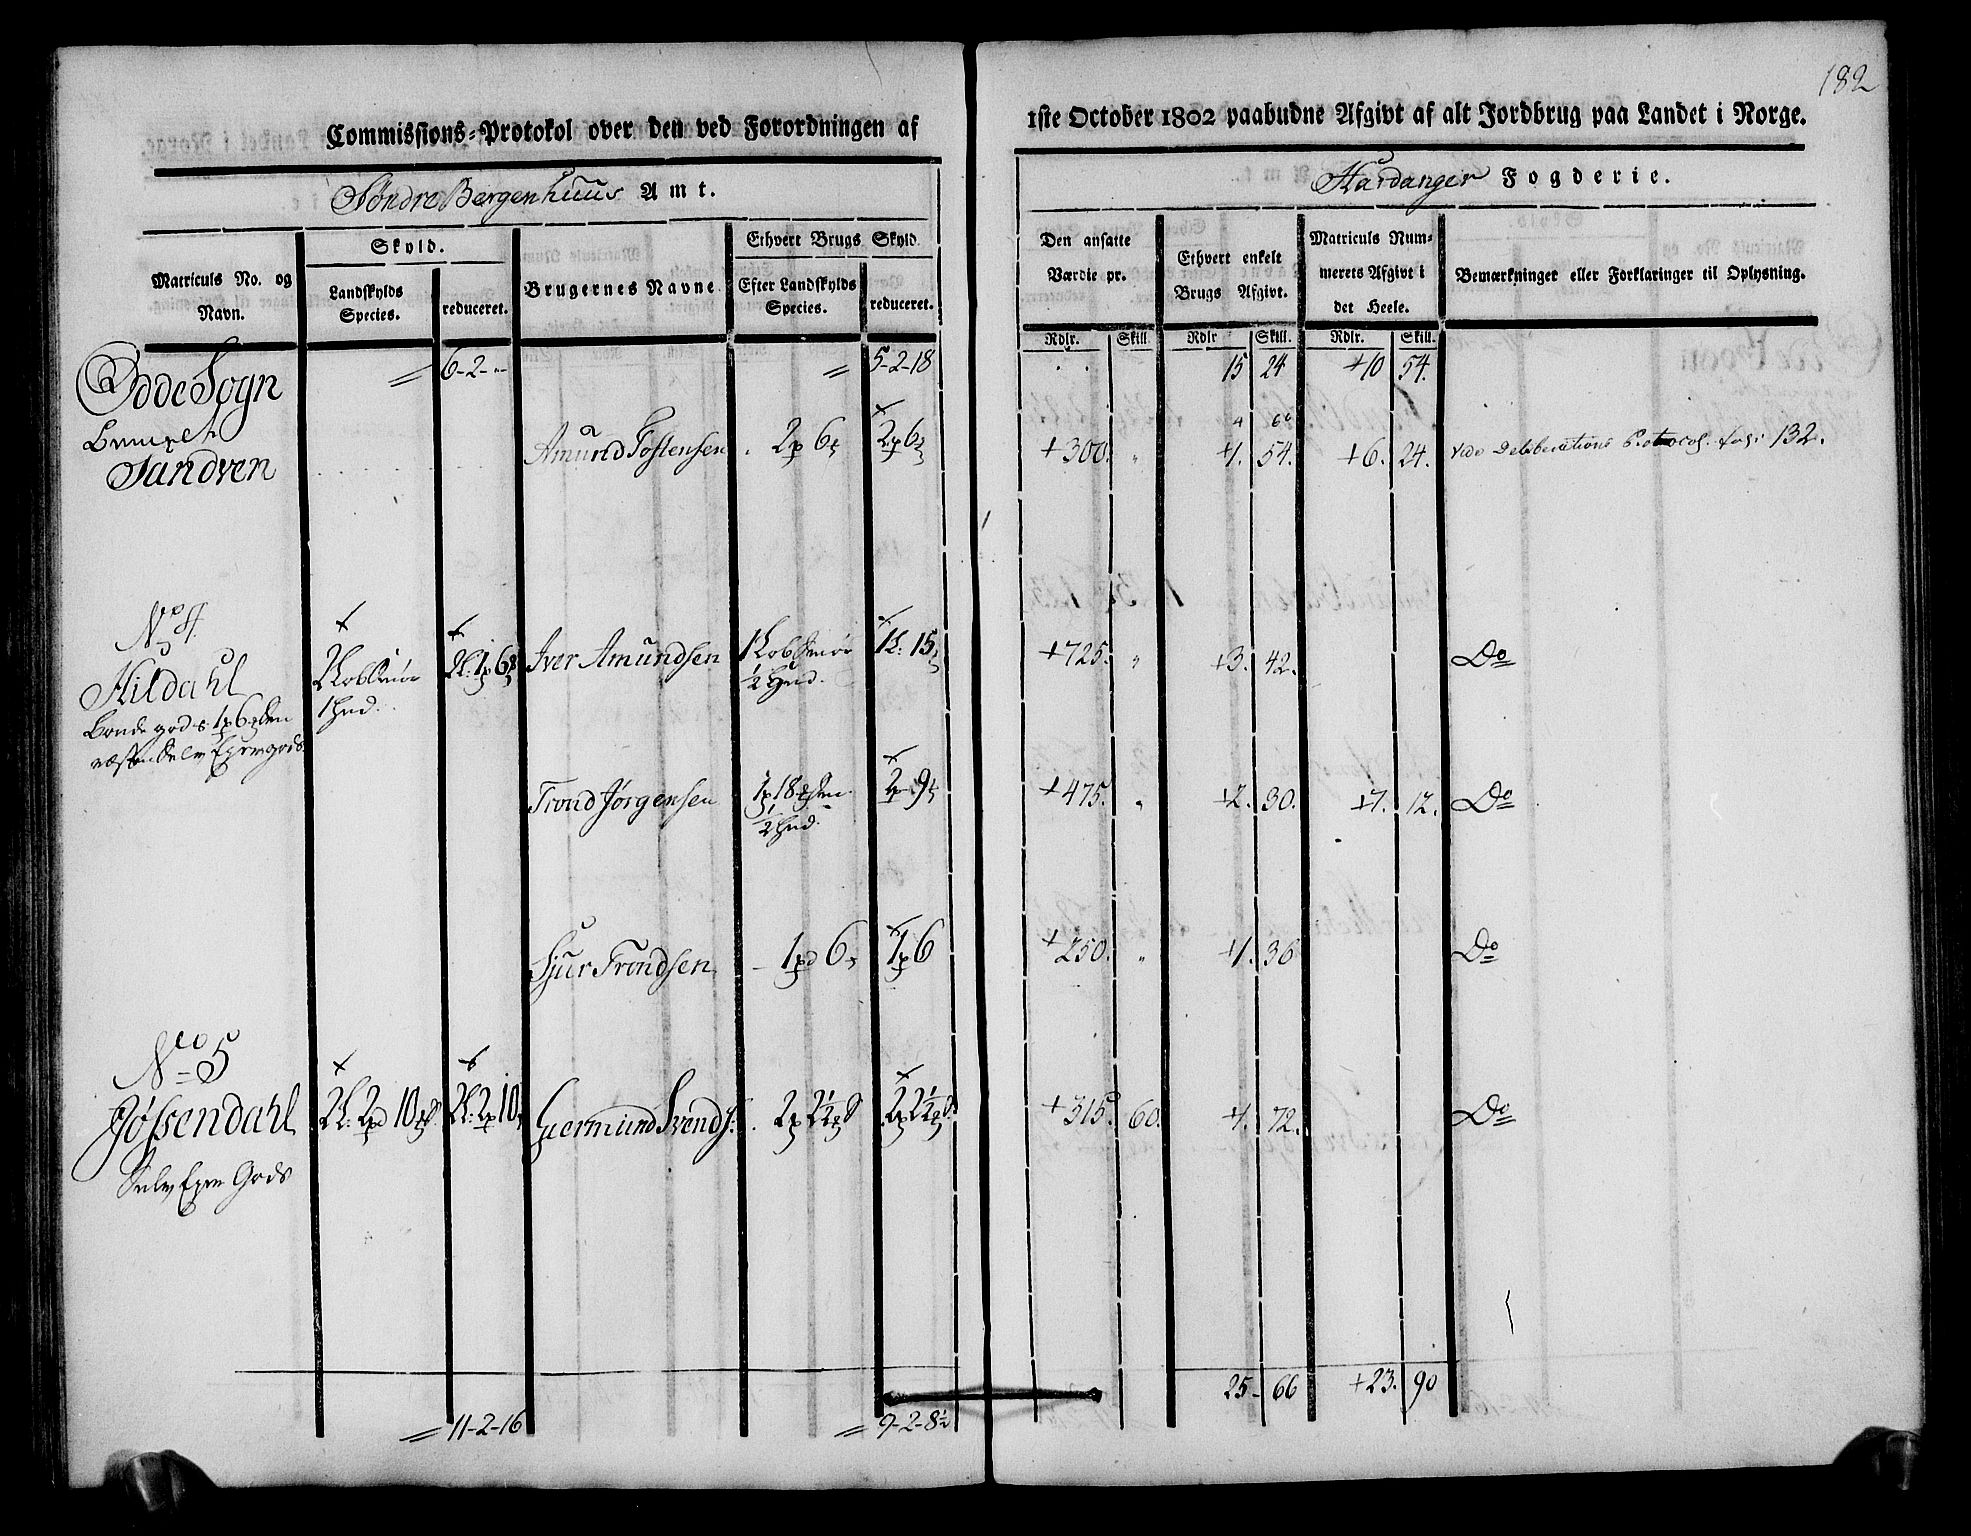 182
Commissions-Protokol over den ved Forordningen af
1ste October 1802 paabudne Afgivt af alt Jordbrug paa Landet i Norge.
Søndre Bergenhuus Amt.
Hardanger Fogderie.
Matriculs No. og Navn.
Skyld.
Landskylds Species.
reduceret.
Brugernes Navne
Ethvert Brugs Skyld.
Efter Landskylds Species.
reduceret.
Den ansatte Værdie pr.
Ethvert enkelt Brugs Afgivt.
Matriculs Nummerets Afgivt i det Heele.
Bemærkninger eller Forklaringer til Oplysning.
Rdlr. Skill. Rdlr Skill. Rdlr. Skill.
Odde Sogn = 6-2-" = 5-2-18 15 24 +10 54.
4 60
Sandven Amund Tostensen 2p 6 2p 6 +300. " +1. 54. +6. 24. vide Deliberations Protocol fol: 132.
No 4.
Hildahl 2 Løb Smør 2L: 1p 6 Iver Amundsen 1 Løb Smør 1L: 15 +725. " +3. 42. Do
1 Hud. ½ Hud.
Bonde gods 1p 6
Trond Jørgensen 1p 18 2p 9 +475. " +2. 30. +7. 12. Do
½ Hud.
Sjur Trondsen 1pd 6 1p 6 +250. " +1. 36 Do
No 5
Jøssendahl 2L: 2pd 10 2L: 2p 10 Guermund Svends: 2p 2½ 2p 2½ +315. 60. +1. 72. Do
Selv Eyer Gods
25- 66 +23. 90
= 11-2-16 = 9-2-8½